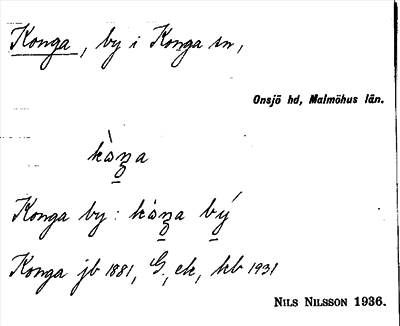 Konga, by i Konga sn,
Onsjö hd, Malmöhus län.
kàŋa
Konga by : kàŋa bý
Konga jb 1881, G, ek, kb 1931
NILS NILSSON 1936.